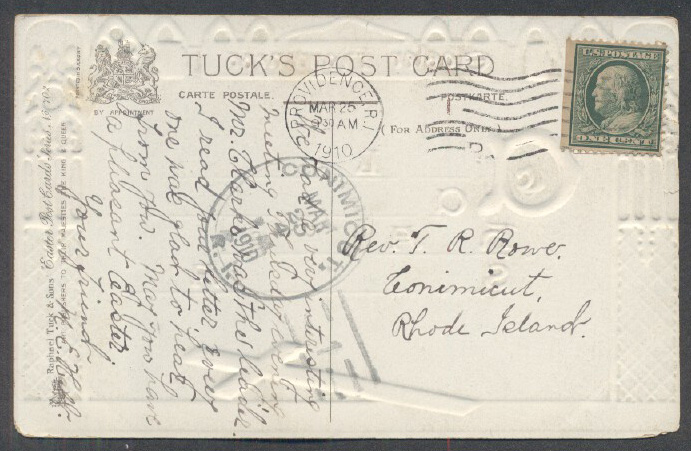 TUCK'S POST CARD
CARTE POSTALE.
POSTKARTE.
BY APPOINTMENT
( FOR ADDRESS ONLY )
PROVIDENCE, R.I.
MAR 25
930 AM
1910
U.S. POSTAGE
ONE CENT
CONIMICUT.
MAR
25
1910
R.I.
We had a very interesting
meeting Tuesday evening
Mr. Clark was the leader.
I read your letter every
one was glad to hear
from you May you have
a pleasant Easter.
Your friend
Rev. T. R. Rowe.
Conimicut,
Rhode Island.
Raphael Tuck & Sons' "Easter" Post Cards Series
TO THEIR MAJESTIES THE KING & QUEEN